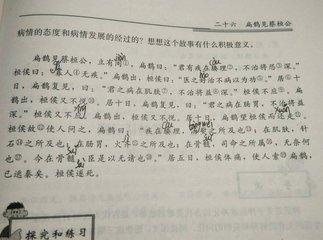 二十六　扁鹊见蔡桓公
病情的态度和病情发展的经过的？想想这个故事有什么积极意义。
扁鹊见蔡桓公，立有间，扁鹊曰：“君有疾在腠理，不治将恐深。”
桓侯曰：“寡人无疾。”扁鹊出，桓侯曰：“医之好治不病以为功！”居十
日，扁鹊复见，曰：“君之病在肌肤，不治将益深。”桓侯不应。扁鹊
出，桓侯又不悦。居十日，扁鹊复见，曰：“君之病在肠胃，不治将益
深。”桓侯又不应。扁鹊出，桓侯又不悦。居十日，扁鹊望桓侯而还走。
桓侯故使人问之，扁鹊曰：“疾在腠理，汤熨之所及也；在肌肤，针
石之所及也；在肠胃，火齐之所及也；在骨髓，司命之所属，无奈何
也。今在骨髓，臣是以无请也。”居五日，桓侯体痛，使人索扁鹊，
已逃秦矣。桓侯遂死。
探究和练习